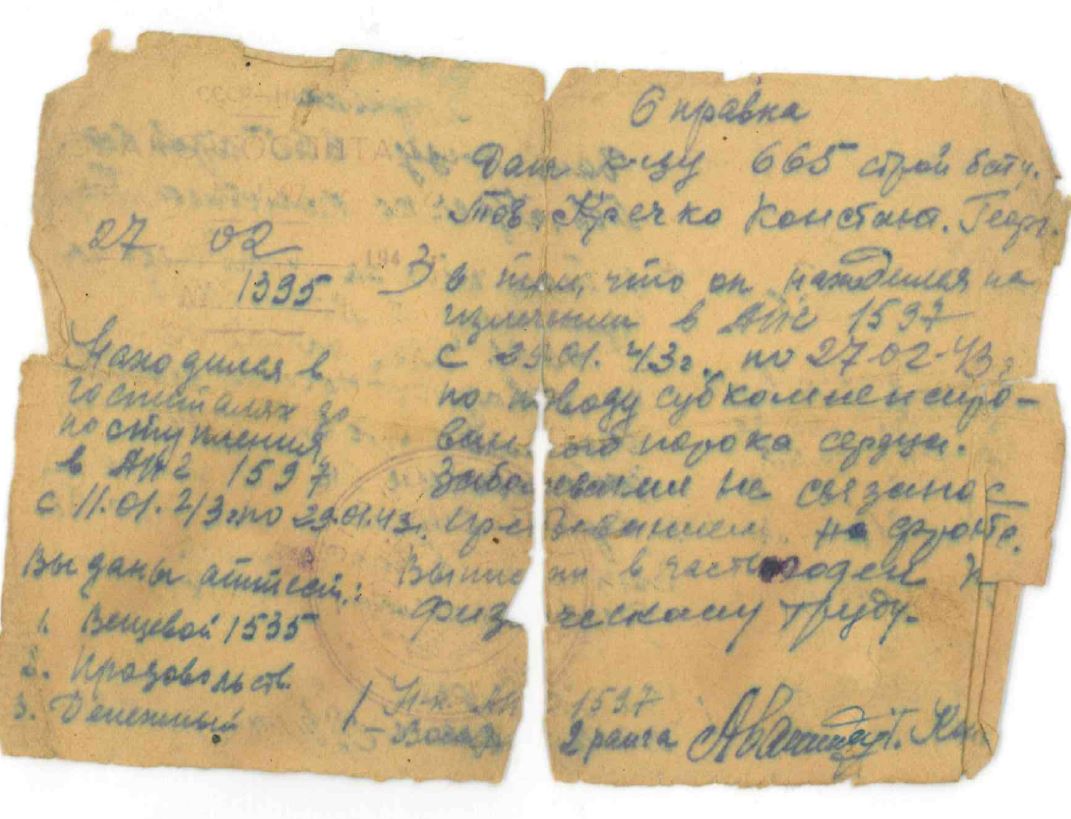 27 02
194 3
1395
Находился в
госпиталях до
поступления
в АПГ 1597
с 11.01.43г. по 29.01.43.
Выданы аттест.:
1. Вещевой 1535
2. Продовольств.
3. Денежный
Справка
Дана к-цу 665 строй бату.
Тов. Кречко Констант. Георг.
в том, что он находился на
излечении в АПГ 1597
с 29.01.43г. по 27.02.43г
по поводу субкомпенсиро-
ванного порока сердца.
Заболевание не связано с
пребыванием на фронте.
Выписан в часть годен к
физическому труду.
1597
2 ранга